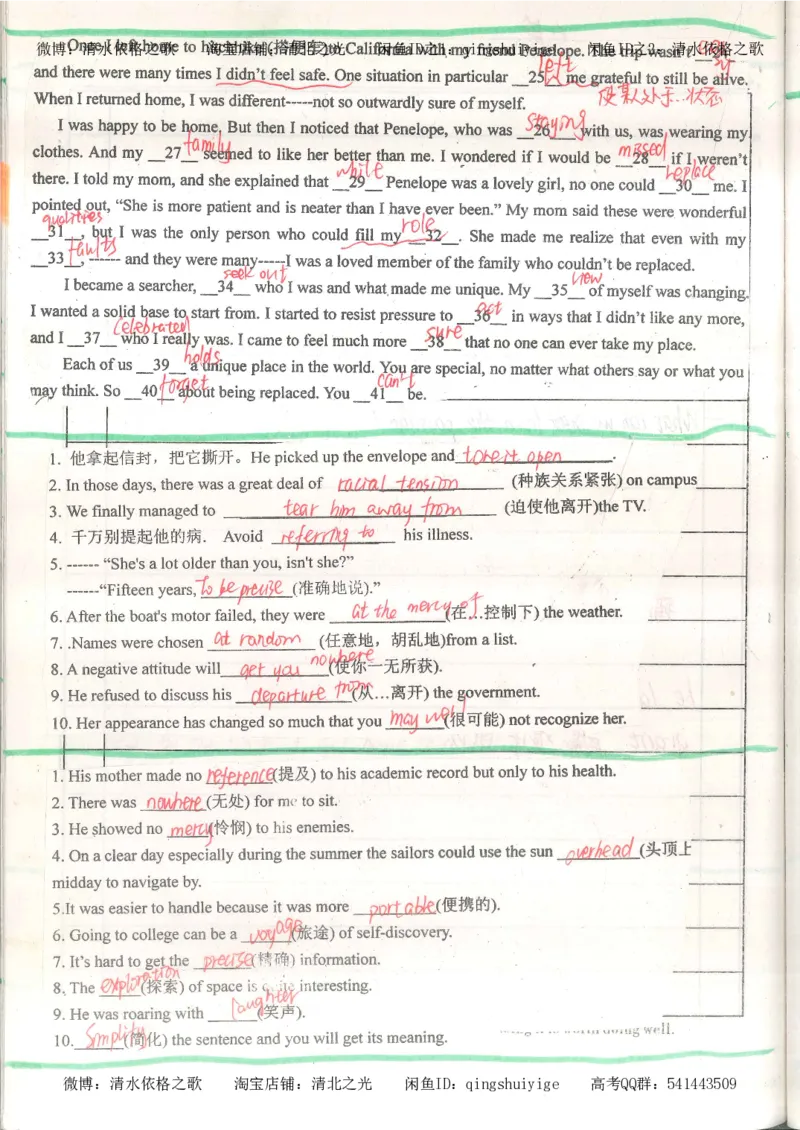 微博：清水依格之歌 淘宝店铺：清北之光 闲鱼ID之1：qingshuiyige 闲鱼ID之2：清水依格之歌
Once I left home to (搭便车) to California with my friend Penelope. The trip wasn't easy
and there were many times I didn't feel safe. One situation in particular __25__ left me grateful to still be alive.
使某人处于…状态
When I returned home, I was different-----not so outwardly sure of myself.
I was happy to be home. But then I noticed that Penelope, who was __26__ staying with us, was wearing my
clothes. And my __27__ family seemed to like her better than me. I wondered if I would be __28__ missed if I weren't
there. I told my mom, and she explained that __29__ while Penelope was a lovely girl, no one could __30__ replace me. I
pointed out, “She is more patient and is neater than I have ever been.” My mom said these were wonderful
__31__ qualities, but I was the only person who could fill my __32__ role. She made me realize that even with my
__33__ faults, ------ and they were many-----I was a loved member of the family who couldn't be replaced.
I became a searcher, __34__ seek out who I was and what made me unique. My __35__ view of myself was changing.
I wanted a solid base to start from. I started to resist pressure to __36__ act in ways that I didn't like any more,
and I __37__ celebrated who I really was. I came to feel much more __38__ sure that no one can ever take my place.
Each of us __39__ holds a unique place in the world. You are special, no matter what others say or what you
may think. So __40__ forget about being replaced. You __41__ can't be.
1. 他拿起信封，把它撕开。He picked up the envelope and tore it open.
2. In those days, there was a great deal of racial tension (种族关系紧张) on campus
3. We finally managed to tear him away from (迫使他离开)the TV.
4. 千万别提起他的病. Avoid referring to his illness.
5. ------ “She's a lot older than you, isn't she?”
------“Fifteen years, to be precise (准确地说).”
6. After the boat's motor failed, they were at the mercy of (在…控制下) the weather.
7. .Names were chosen at random (任意地，胡乱地)from a list.
8. A negative attitude will get you nowhere (使你一无所获).
9. He refused to discuss his departure from (从…离开) the government.
10. Her appearance has changed so much that you may well (很可能) not recognize her.
1. His mother made no reference (提及) to his academic record but only to his health.
2. There was nowhere (无处) for me to sit.
3. He showed no mercy (怜悯) to his enemies.
4. On a clear day especially during the summer the sailors could use the sun overhead (头顶上
midday to navigate by.
5.It was easier to handle because it was more portable (便携的).
6. Going to college can be a voyage (旅途) of self-discovery.
7. It's hard to get the precise (精确) information.
8, The exploration (探索) of space is quite interesting.
9. He was roaring with laughter (笑声).
10. Simplify (简化) the sentence and you will get its meaning.
well.
微博：清水依格之歌 淘宝店铺：清北之光 闲鱼ID：qingshuiyige 高考QQ群：541443509